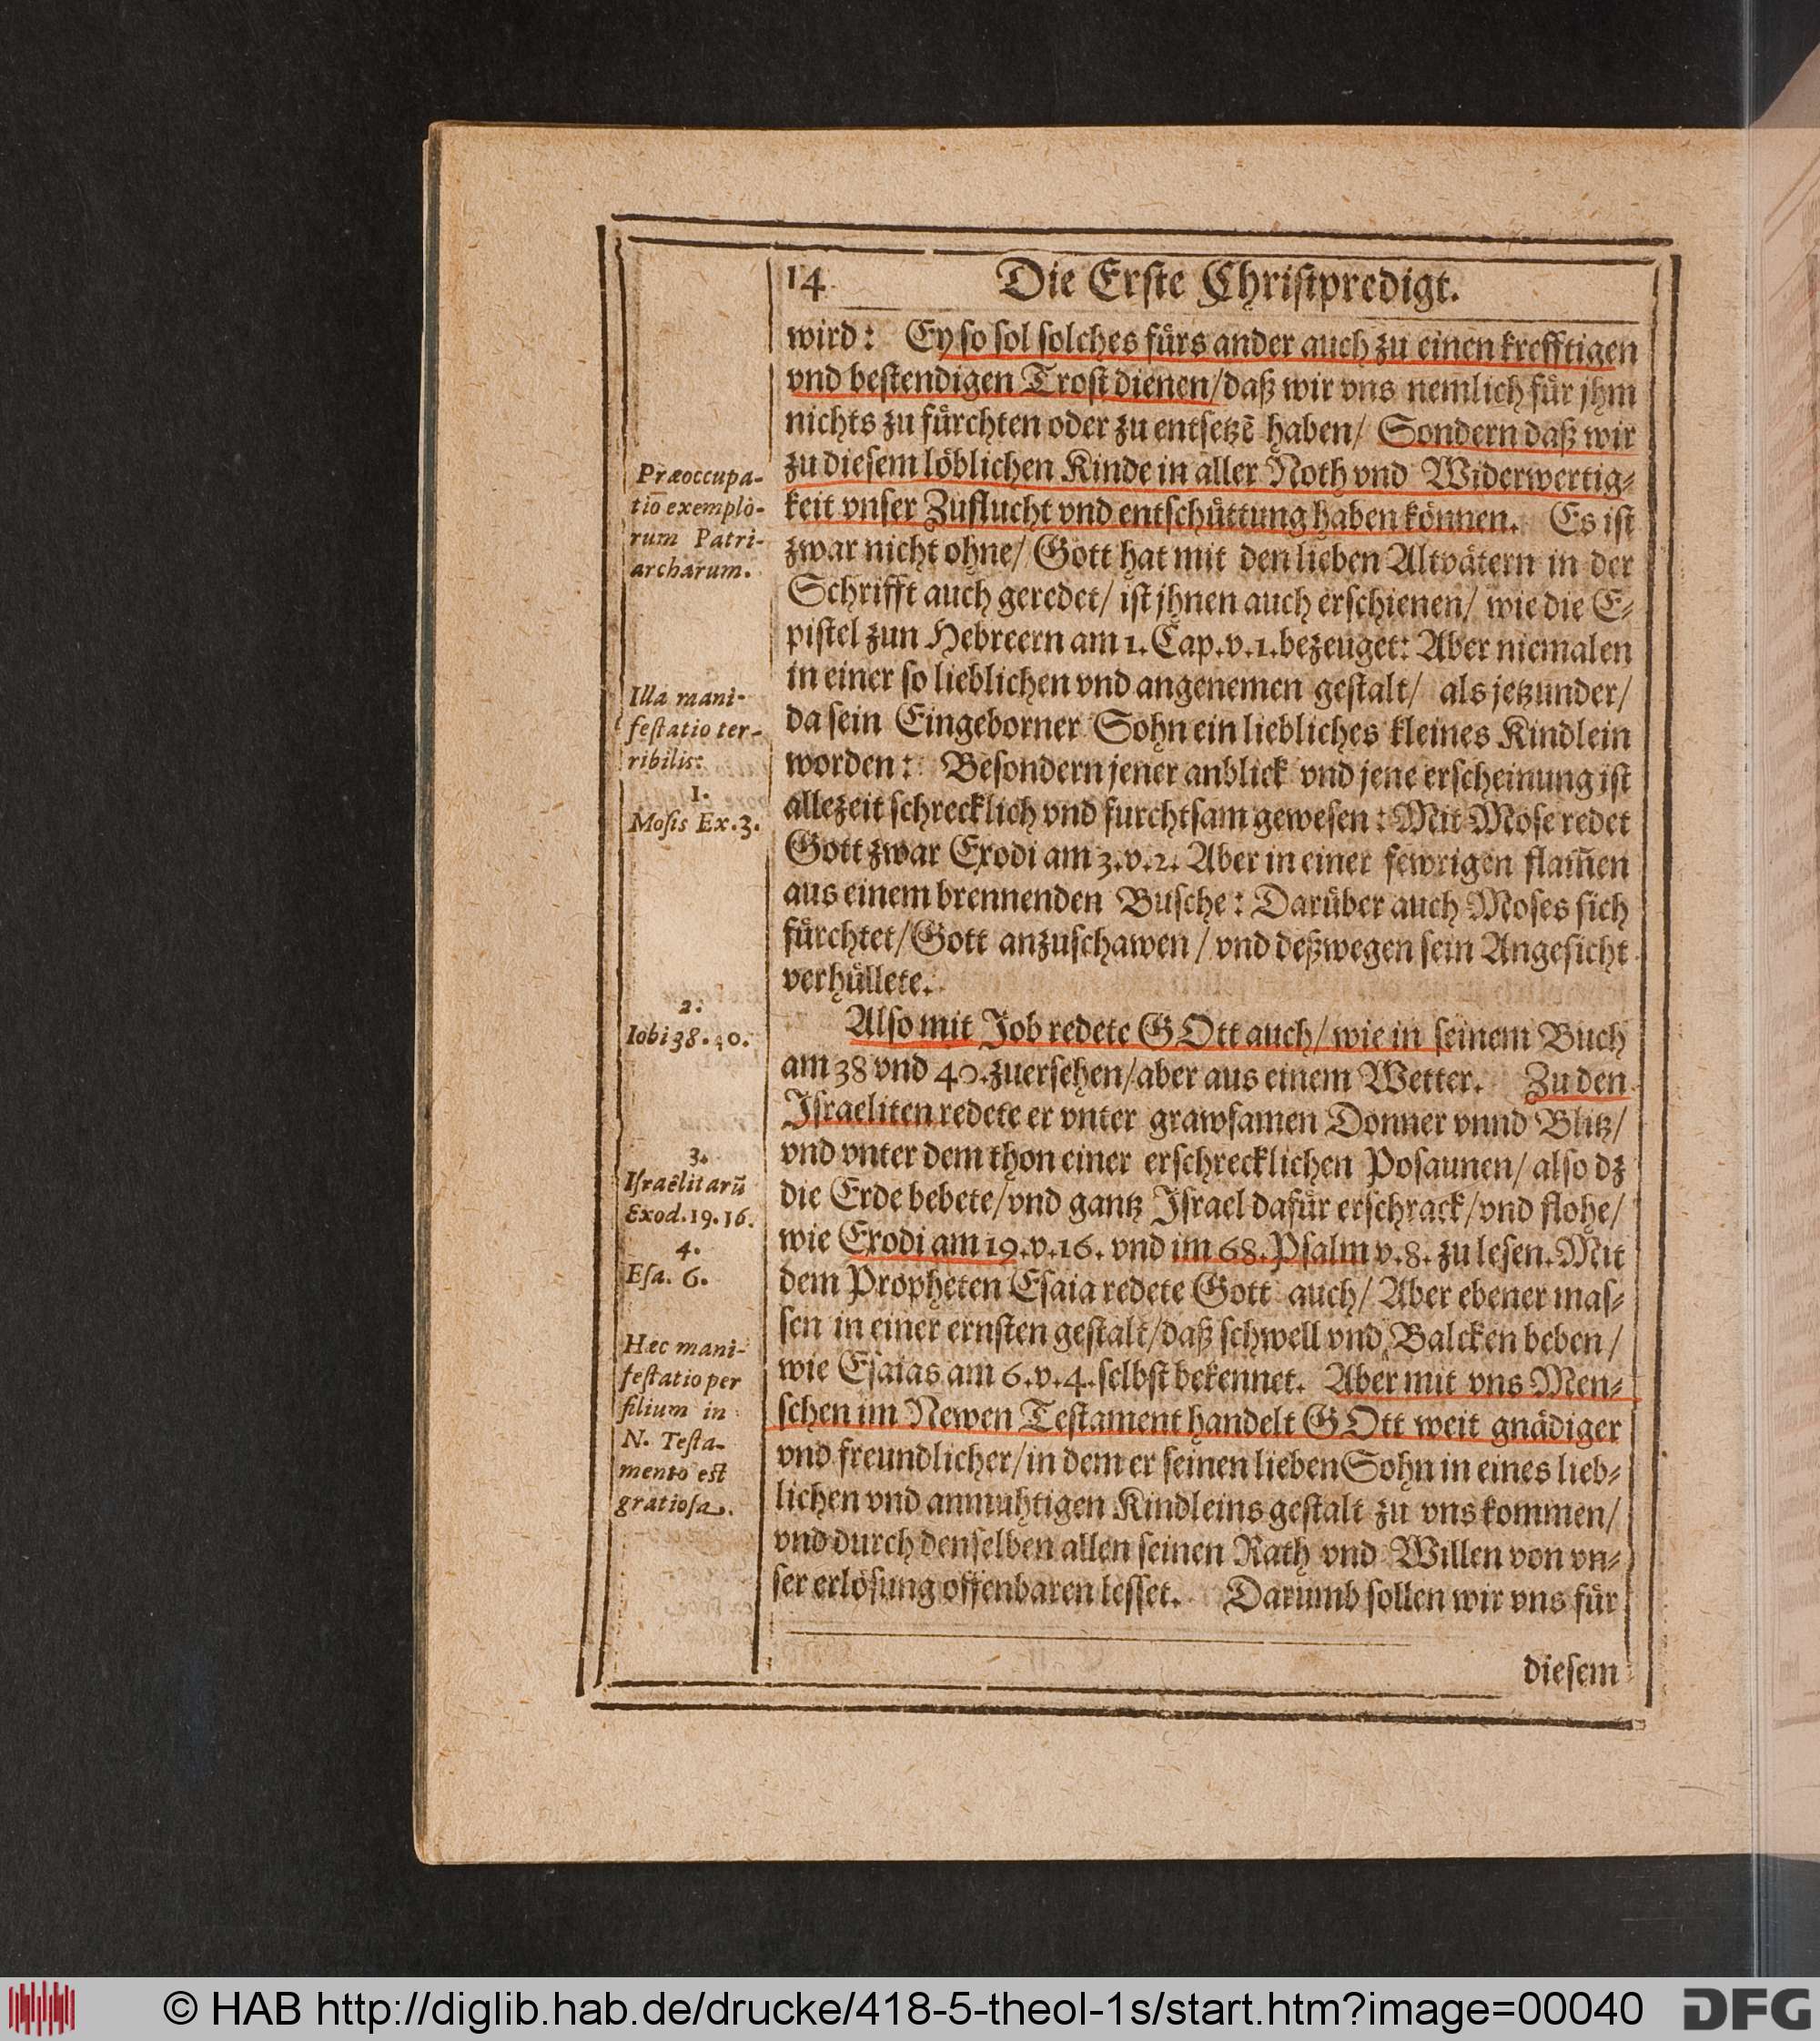 14 Die Erste Christpredigt.
wird: Ey so sol solches fürs ander auch zu einen krefftigen
vnd bestendigen Trost dienen/daß wir vns nemlich für jhm
nichts zu fürchten oder zu entsetzẽ haben/ Sondern daß wir
zu diesem löblichen Kinde in aller Noth vnd Widerwertig-
keit vnser Zuflucht vnd entschüttung haben können. Es ist
zwar nicht ohne/ Gott hat mit den lieben Altvätern in der
Schrifft auch geredet/ ist jhnen auch erschienen/ wie die E-
pistel zun Hebreern am 1. Cap.v.1.bezeuget: Aber niemalen
in einer so lieblichen vnd angenemen gestalt/ als jetzunder/
da sein Eingeborner Sohn ein liebliches kleines Kindlein
worden: Besondern jener anblick vnd jene erscheinung ist
allezeit schrecklich vnd furchtsam gewesen: Mit Mose redet
Gott zwar Exodi am 3.v.2. Aber in einer fewrigen flam̃en
aus einem brennenden Busche: Darüber auch Moses sich
fürchtet/Gott anzuschawen/ vnd deßwegen sein Angesicht
verhüllete.
Also mit Job redete GOtt auch/ wie in seinem Buch
am 38 vnd 40.zuersehen/aber aus einem Wetter. Zu den
Israeliten redete er vnter grawsamen Donner vnnd Blitz/
vnd vnter dem thon einer erschrecklichen Posaunen/ also dz
die Erde bebete/vnd gantz Israel dafür erschrack/vnd flohe/
wie Exodi am 19.v.16. vnd im 68.Psalm v.8. zu lesen.Mit
dem Propheten Esaia redete Gott auch/ Aber ebener mas-
sen in einer ernsten gestalt/daß schwell vnd Balcken beben/
wie Esaias am 6.v.4.selbst bekennet. Aber mit vns Men-
schen im Newen Testament handelt GOtt weit gnädiger
vnd freundlicher/in dem er seinen lieben Sohn in eines lieb-
lichen vnd anmuhtigen Kindleins gestalt zu vns kommen/
vnd durch denselben allen seinen Rath vnd Willen von vn-
ser erlösung offenbaren lesset. Darumb sollen wir vns für
diesem
Præoccupa-
tiō exemplo-
rum Patri-
archarum.
Illa mani-
festatio ter-
ribilis:
1.
Mosis Ex.3.
2.
Iobi 38.40.
3.
Israëlitarũ
Exod.19.16.
4.
Esa. 6.
Hæc mani-
festatio per
filium in
N. Testa-
mento est
gratiosa.
© HAB http://diglib.hab.de/drucke/418-5-theol-1s/start.htm?image=00040
DFG